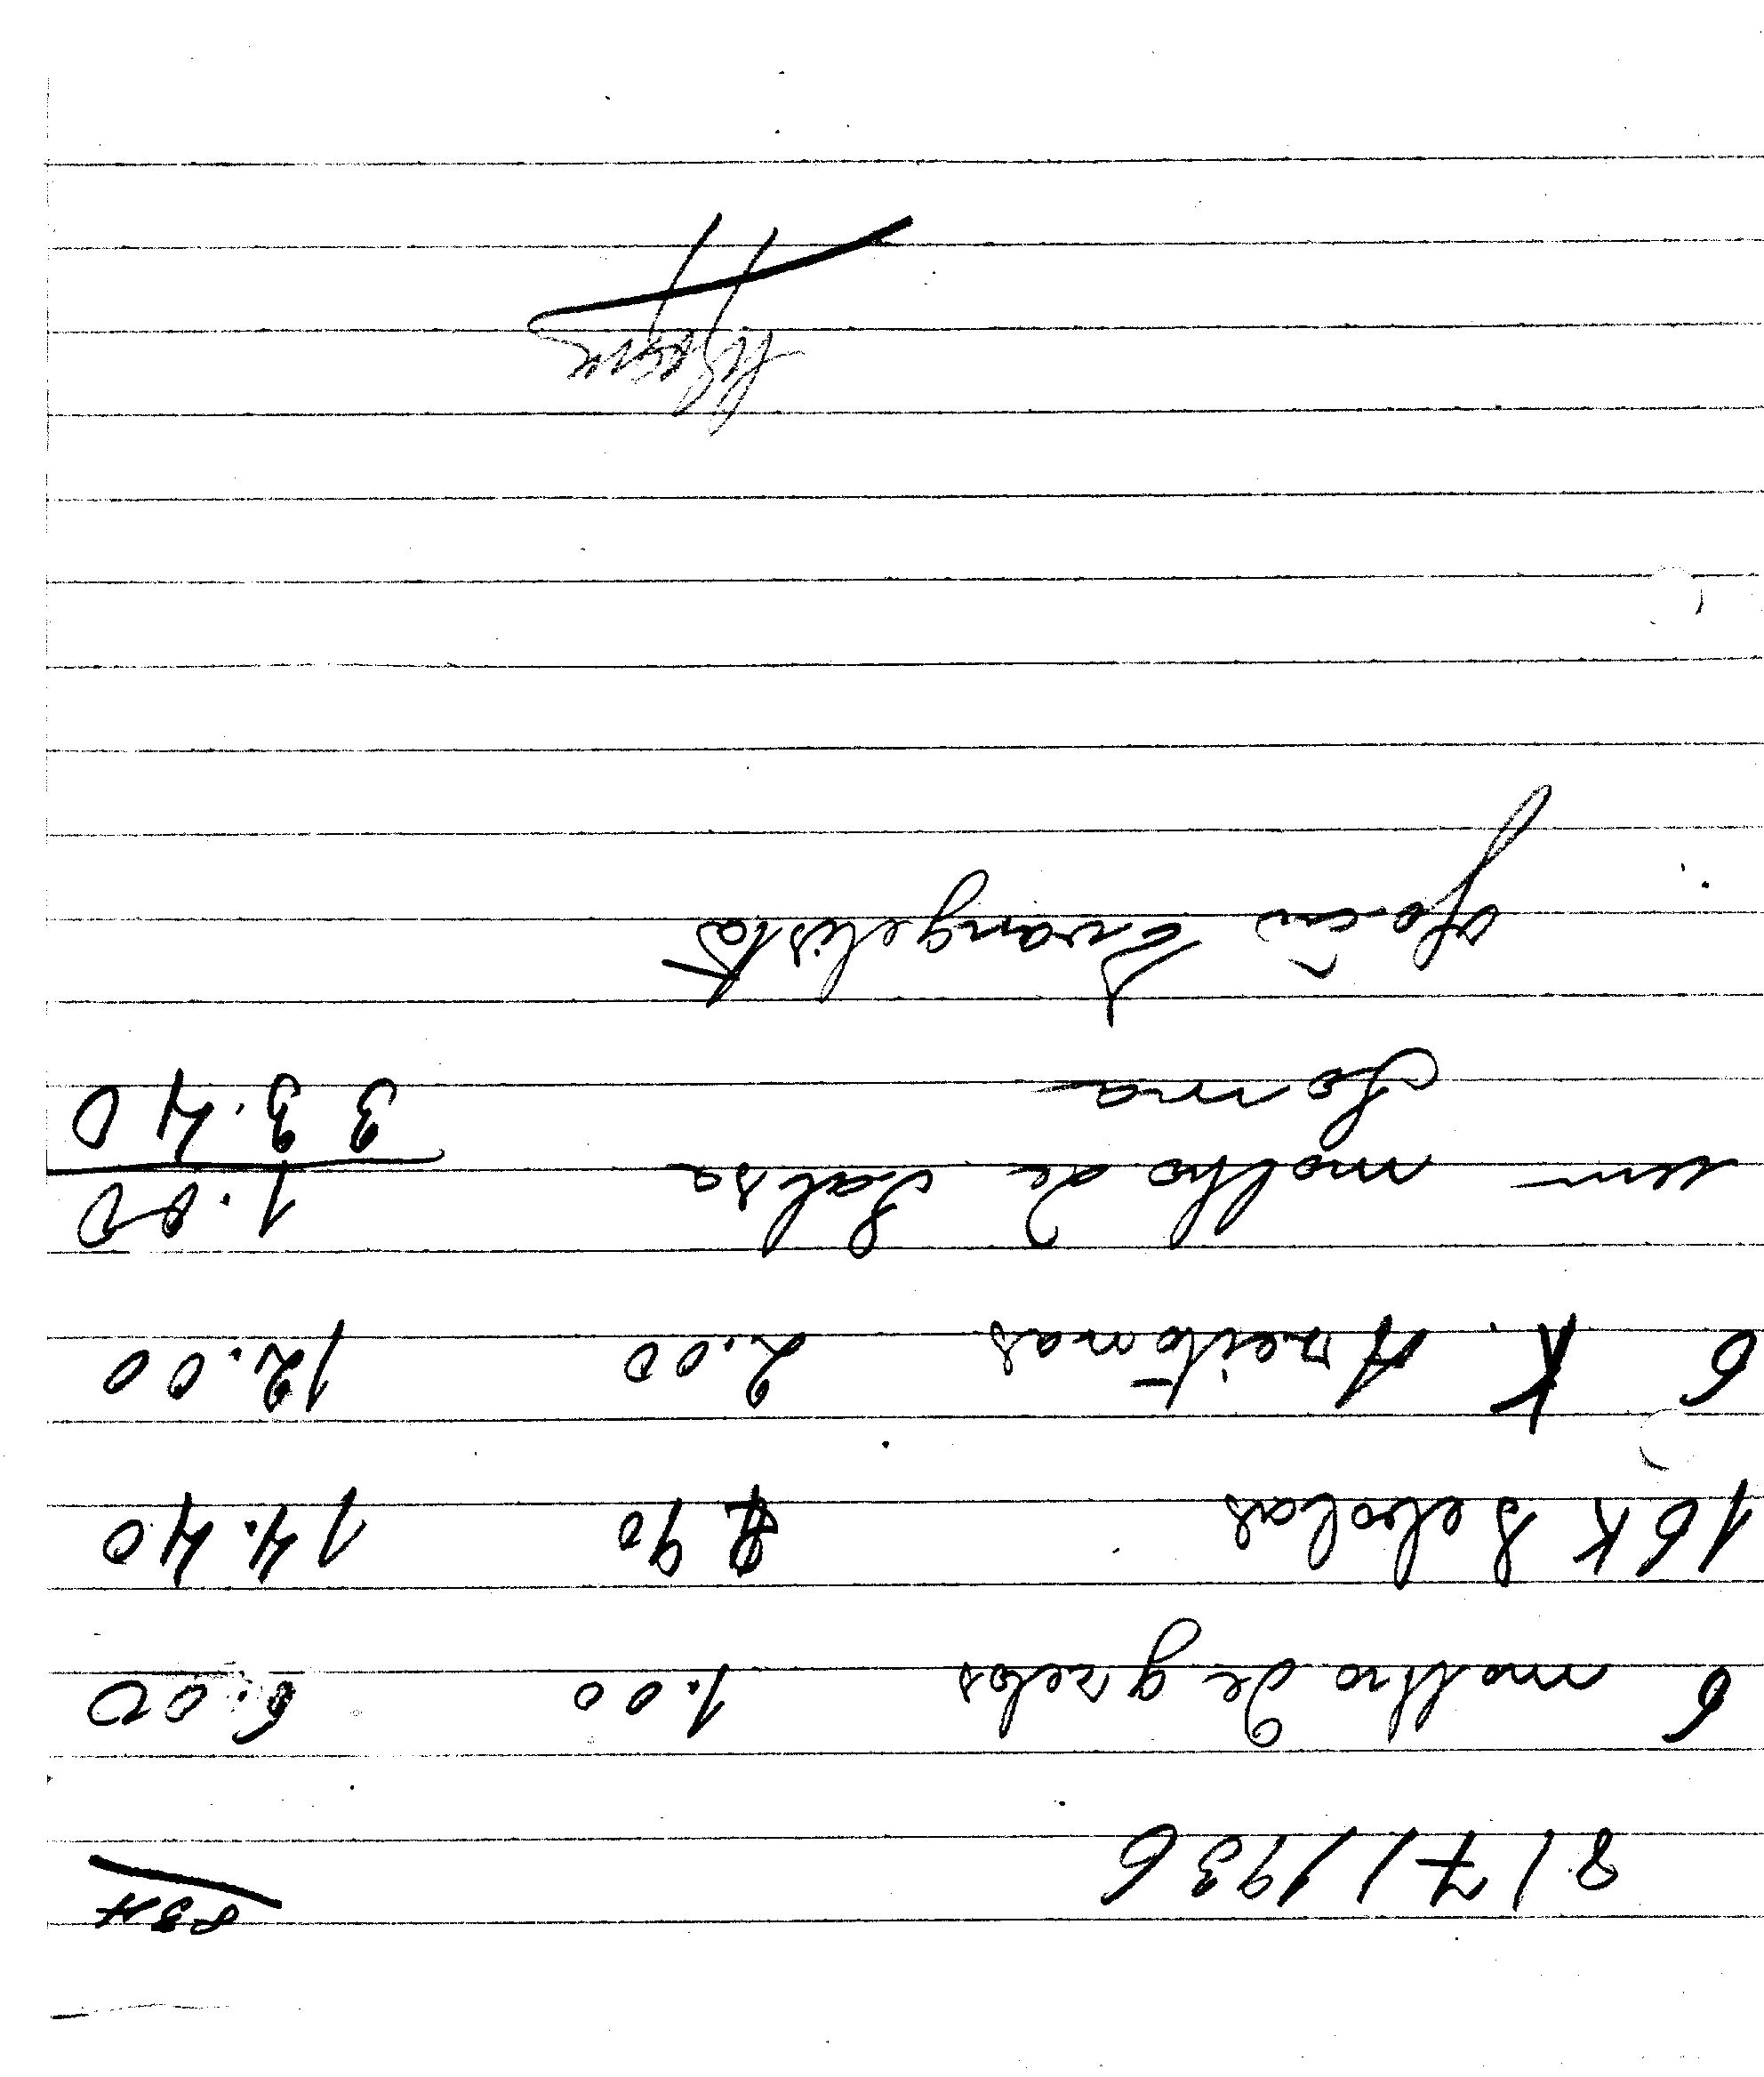 834
8/7/1936
6 molho de grelos 1.00 6.00
16 K Sebolas 90 14.40
6 K. Azeitonas 2.00 12.00
um molho de Salsa 1.00
Soma 33.40
João Evangelista